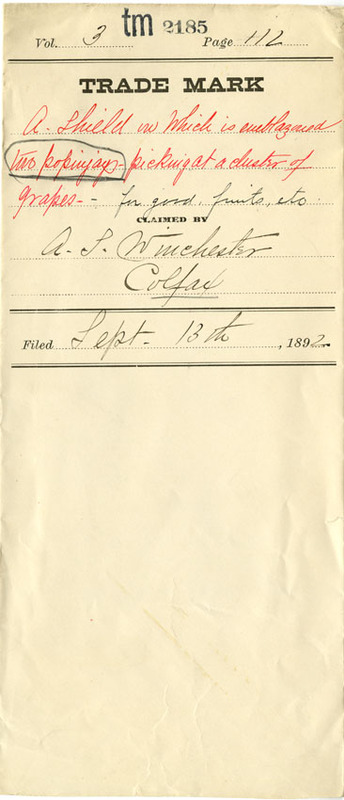 tm 2185
Vol. 3 Page 112
TRADE MARK
A. Shield on Which is emblazoned
two popinjays picking at a cluster of
grapes - - for good, fruits, etc.
CLAIMED BY
A. S. Winchester
Colfax
Filed Sept. 13th, 1892